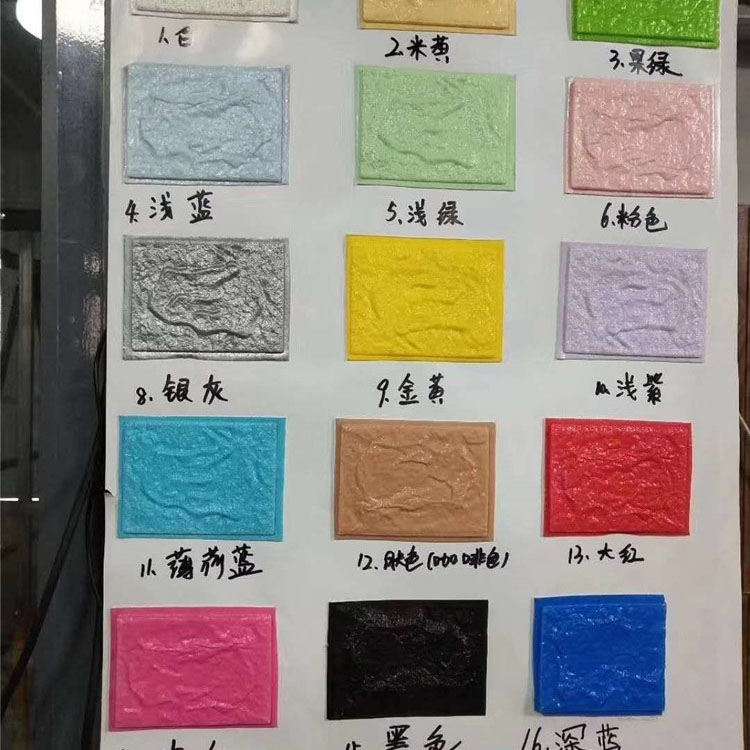 1.白
2.米黄
3.果绿
4.浅蓝
5.浅绿
6.粉色
8.银灰
9.金黄
10.浅紫
11.薄荷蓝
12.肤色(咖啡色)
13.大红
15.黑色
16.深蓝